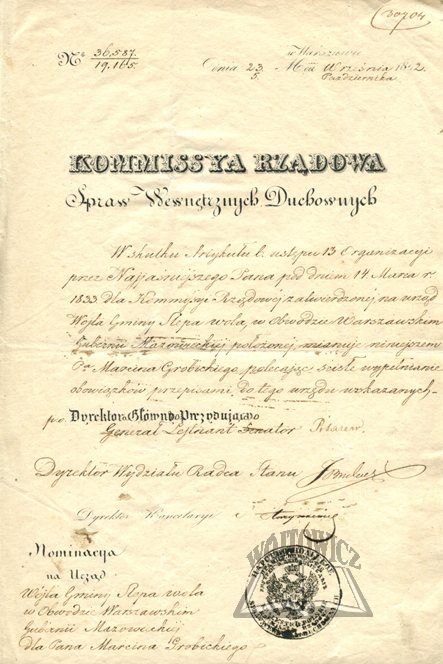 30704
w Warszawie
Nº 36,587. / 19,165.
Dnia 23 / 5 Mca Września / Października 1842.
KOMMISSYA RZĄDOWA
Spraw Wewnętrznych Duchownych
W skutku Artykułu 6. ustępu 13 Organizacyi
przez Najjaśniejszego Pana pod dniem 14 Marca r.
1833 dla Kommissyi Rządowéj zatwierdzonéj na urząd
Wójta Gminy Ślepa wola, w Obwodzie Warszawskim
Gubernii Mazowieckiéj położonéj mianuje niniejszem
Pa Marcina Grobickiego, polecając ścisłe wypełnianie
obowiązków przepisami do tego urzędu wskazanych.
p.o. Dyrektora Głównego Prezydującego
Generał Lejtnant Senator
Dyrektor Wydziału Radca Stanu
Dyrektor Kancellaryi
Nominacya
na Urząd
Wójta Gminy Ślepa wola
w Obwodzie Warszawskim
Gubernii Mazowieckiéj
dla Pana Marcina Grobickiego
WÓJTOWICZ